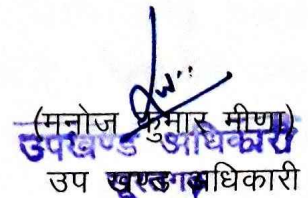 (मनोज कुमार मीणा)
उपखण्ड अधिकारी
उप खण्ड अधिकारी
सूरतगढ़